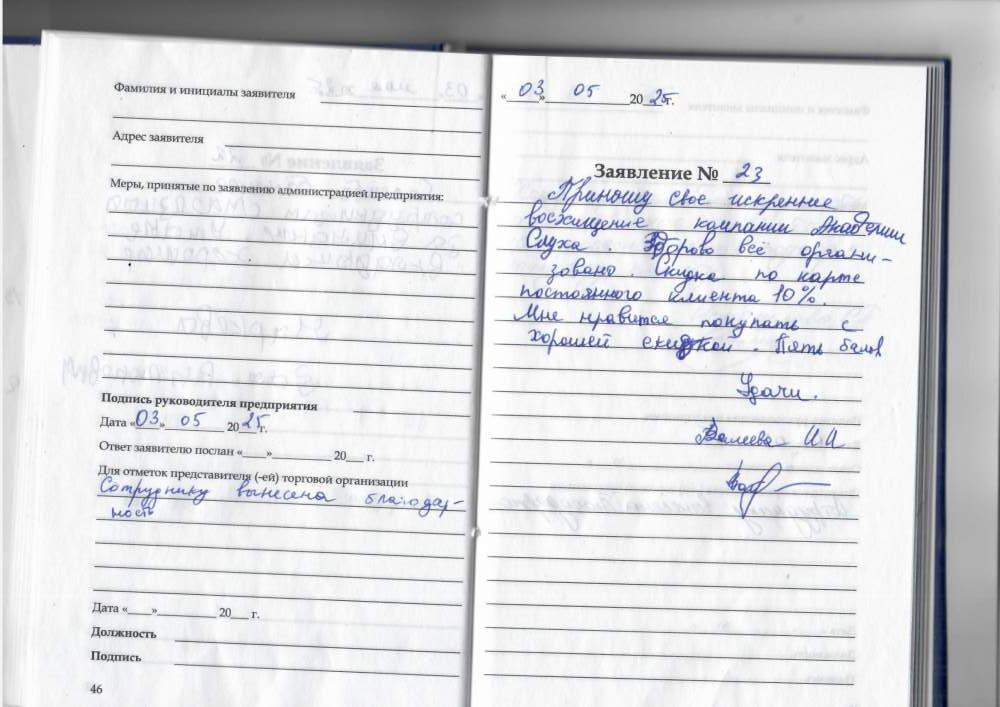 Фамилия и инициалы заявителя
Адрес заявителя
Меры, принятые по заявлению администрацией предприятия:
Подпись руководителя предприятия
Дата «03» 05 2025г.
Ответ заявителю послан «___»_________ 20___ г.
Для отметок представителя (-ей) торговой организации
Сотруднику вынесена благодар-
ность
Дата «___»_________ 20___ г.
Должность
Подпись
46
«03» 05 2025г.
Заявление № 23
Приношу свое искреннее
восхищение компании Академии
Слуха Здорово всё органи-
зовано. Скидка по карте
постоянного клиента 10%.
Мне нравится покупать с
хорошей скидкой. Пять балов
Удачи.
Валеева И И